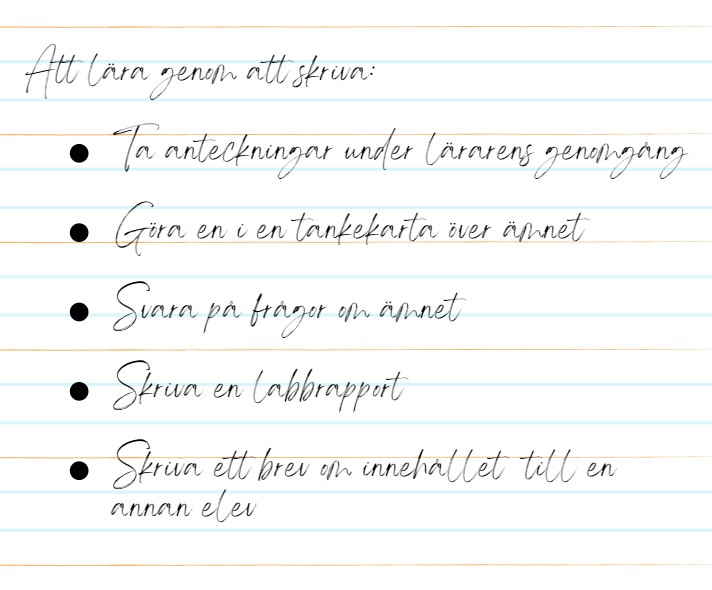 Att lära genom att skriva:
● Ta anteckningar under lärarens genomgång
● Göra en i en tankekarta över ämnet
● Svara på frågor om ämnet
● Skriva en labbrapport
● Skriva ett brev om innehållet till en
annan elev